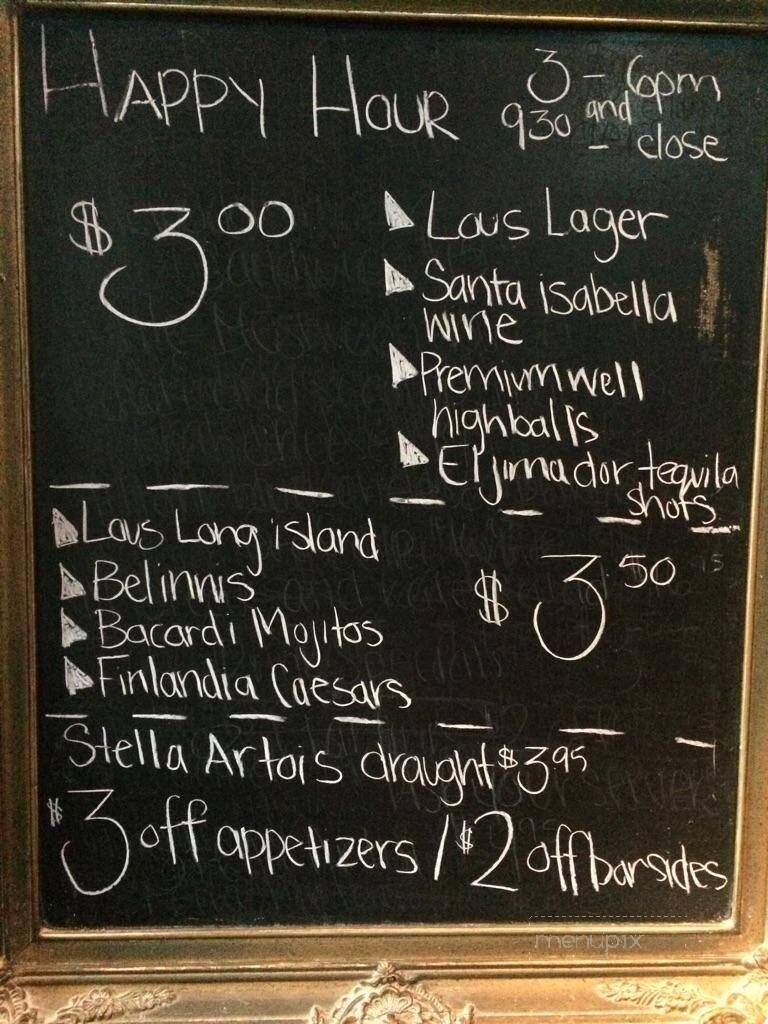 HAPPY HOUR 3 - 6pm
and
930 - close
$3.00
Lous Lager
Santa isabella
wine
Premium well
highballs
El jimador tequila
shots
Lous Long island
Belinnis
Bacardi Mojitos
Finlandia Caesars
$3.50
Stella Artois draught $3.95
$3 off appetizers / $2 off barsides
menupix